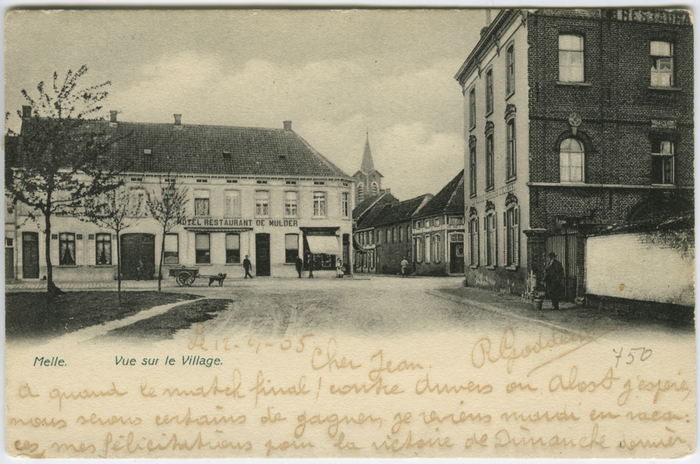 RESTAURA
HOTEL RESTAURANT DE MULDER
Melle. Vue sur le Village.
Le 12-9-05
Cher Jean. R Goddent
750
A quand le match final! contre Anvers ou Alost j'espère,
nous serons certains de gagner, je reviens mardi en vacan-
ces, mes félicitations pour la victoire de Dimanche dernier.